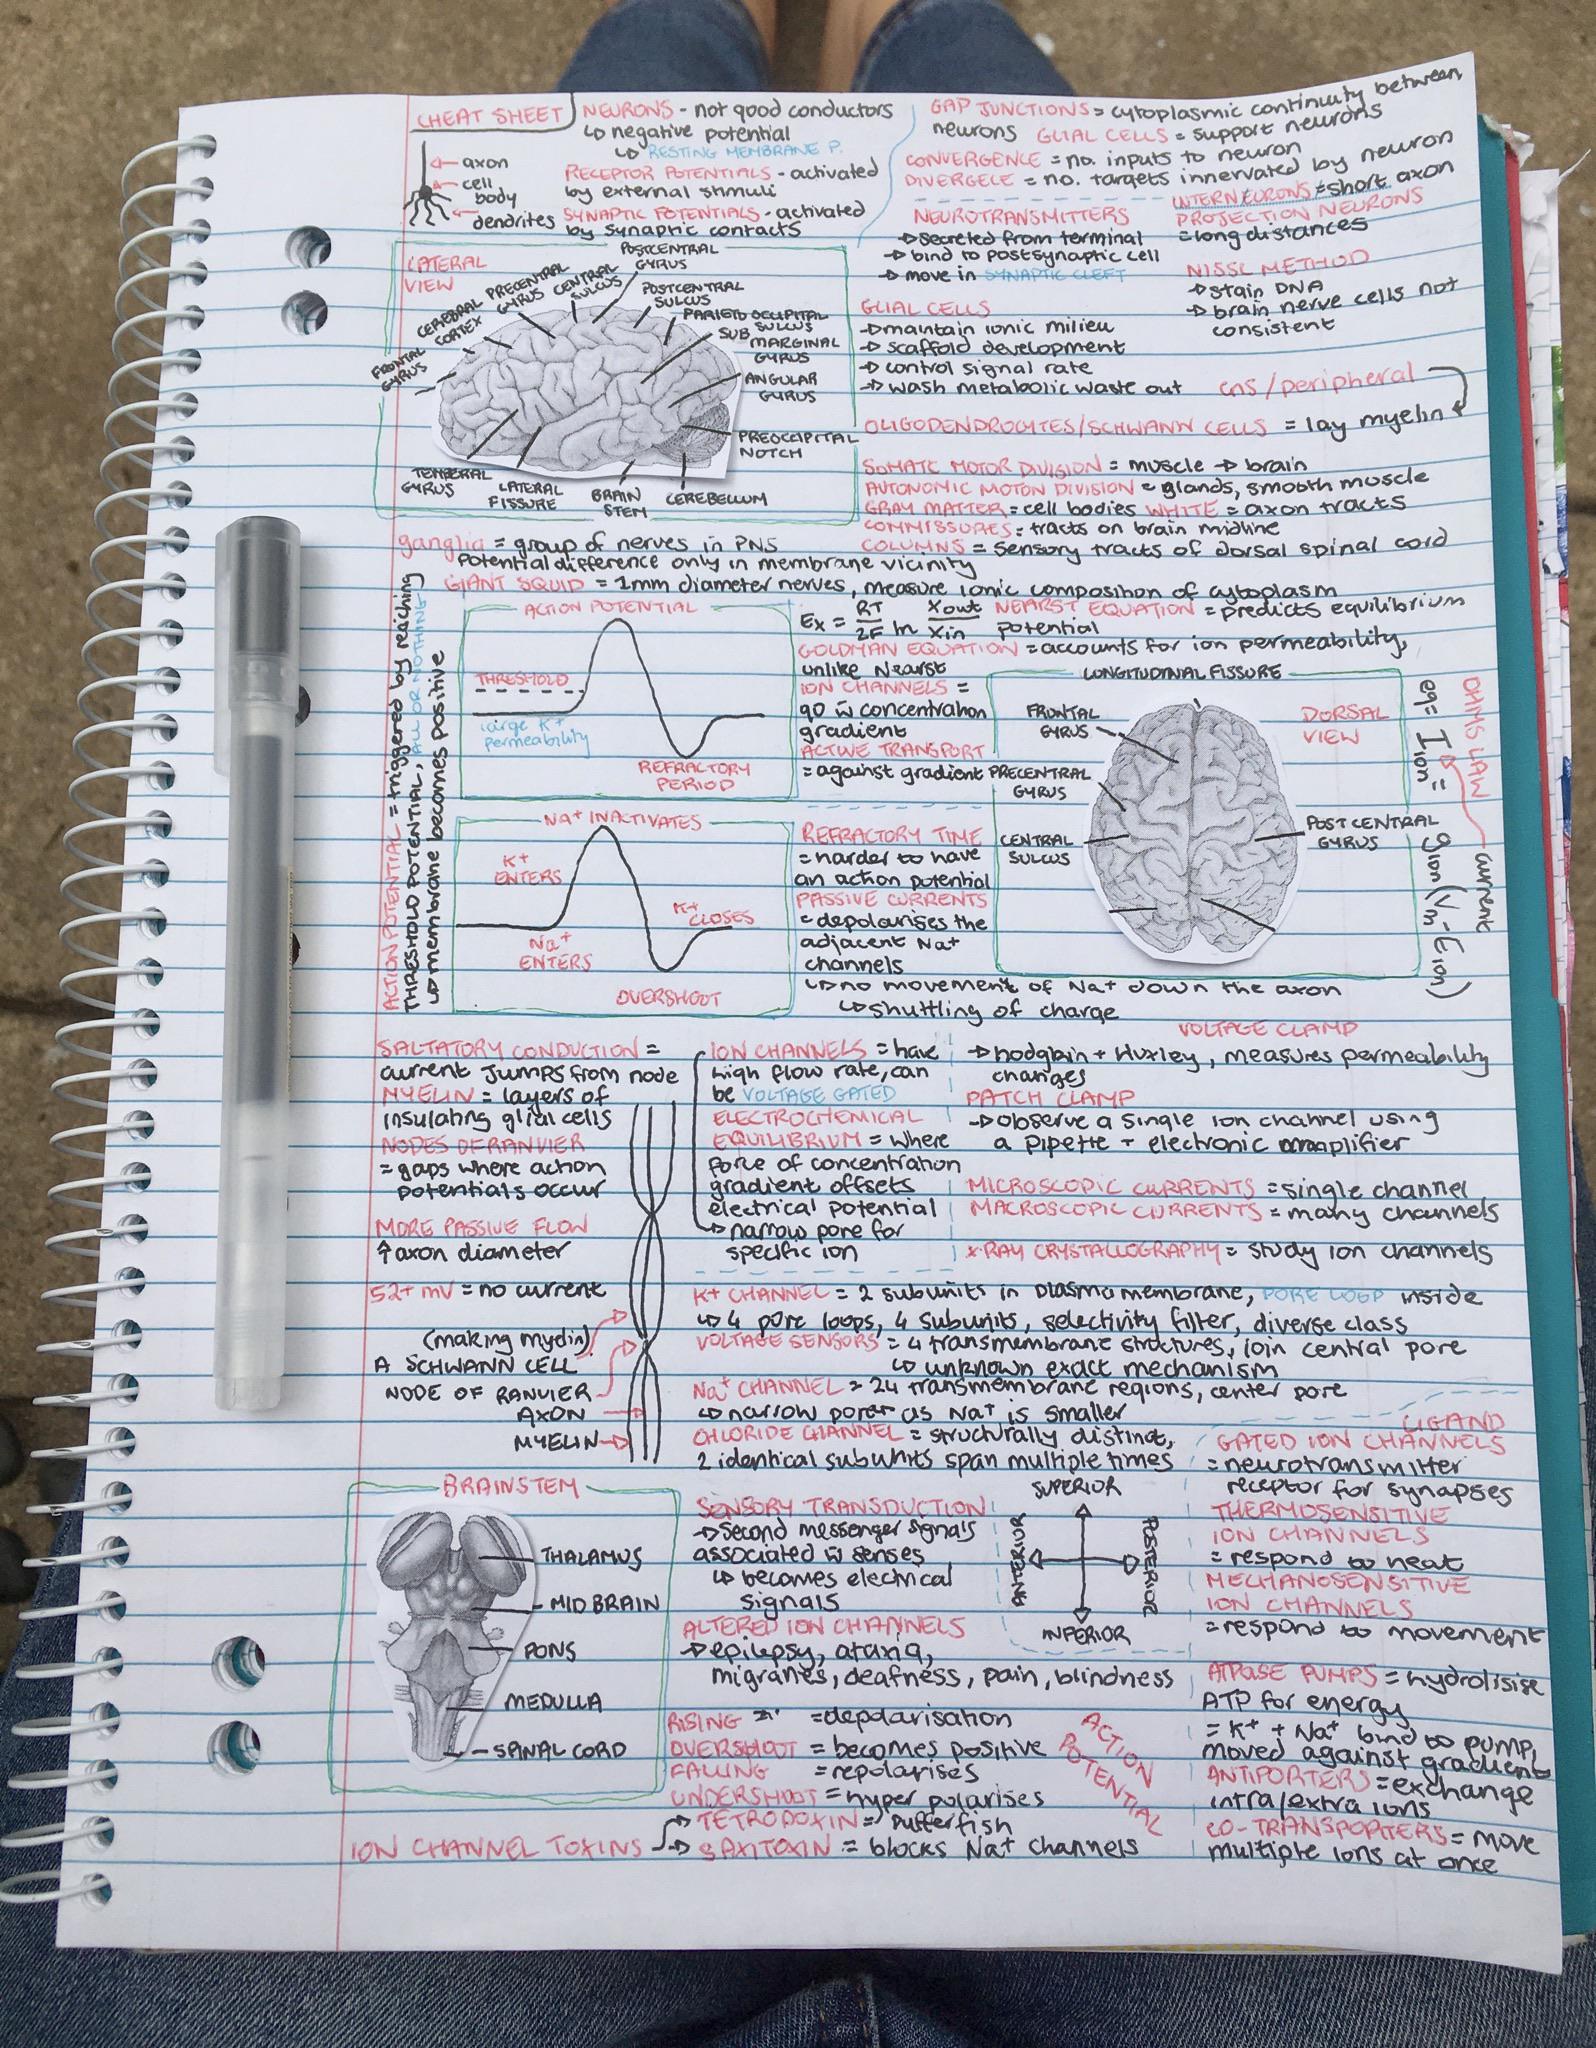 CHEAT SHEET
NEURONS - not good conductors
↳ negative potential
↳ RESTING MEMBRANE P.
RECEPTOR POTENTIALS - activated
by external stimuli
SYNAPTIC POTENTIALS - activated
by synaptic contacts
axon
cell
body
dendrites
GAP JUNCTIONS = cytoplasmic continuity between
neurons GLIAL CELLS = support neurons
CONVERGENCE = no. inputs to neuron
DIVERGECE = no. targets innervated by neuron
INTERNEURONS = short axon
PROJECTION NEURONS
= long distances
NEUROTRANSMITTERS
→ secreted from terminal
→ bind to postsynaptic cell
→ move in SYNAPTIC CLEFT
NISSL METHOD
→ stain DNA
→ brain nerve cells not
consistent
LATERAL
VIEW
FRONTAL
GYRUS
CEREBRAL
CORTEX
PRECENTRAL
GYRUS
CENTRAL
SULCUS
POSTCENTRAL
GYRUS
POSTCENTRAL
SULCUS
PARIETOOCCIPITAL
SULCUS
SUB
MARGINAL
GYRUS
ANGULAR
GYRUS
PREOCCIPITAL
NOTCH
CEREBELLUM
BRAIN
STEM
LATERAL
FISSURE
TEMPERAL
GYRUS
GLIAL CELLS
→ maintain ionic milieu
→ scaffold development
→ control signal rate
→ wash metabolic waste out
cns / peripheral
OLIGODENDROCYTES/SCHWANN CELLS = lay myelin
SOMATIC MOTOR DIVISION = muscle → brain
AUTONOMIC MOTON DIVISION = glands, smooth muscle
GRAY MATTER = cell bodies WHITE = axon tracts
COMMISSURES = tracts on brain midline
COLUMNS = sensory tracts of dorsal spinal cord
ganglia = group of nerves in PNS
Potential difference only in membrane vicinity
GIANT SQUID = 1mm diameter nerves, measure ionic composition of cytoplasm
ACTION POTENTIAL = triggered by reaching
THRESHOLD POTENTIAL, ALL OR NOTHING
↳ membrane becomes positive
ACTION POTENTIAL
THRESHOLD
large K+
permeability
REFRACTORY
PERIOD
Ex = RT/2F ln Xout/Xin NEARST EQUATION = predicts equilibrium
potential
GOLDMAN EQUATION = accounts for ion permeability,
unlike Nearst
ION CHANNELS =
go w̄ concentration
gradient
ACTIVE TRANSPORT
= against gradient
LONGITUDINAL FISSURE
DORSAL
VIEW
FRONTAL
GYRUS
PRECENTRAL
GYRUS
CENTRAL
SULCUS
POST CENTRAL
GYRUS
OHMS LAW
current
eq = Iion = gion (Vm - Eion)
Na+ INACTIVATES
K+
ENTERS
Na+
ENTERS
K+
CLOSES
OVERSHOOT
REFRACTORY TIME
= harder to have
an action potential
PASSIVE CURRENTS
= depolarises the
adjacent Na+
channels
↳ no movement of Na+ down the axon
↳ shuttling of charge
SALTATORY CONDUCTION =
current jumps from node
MYELIN = layers of
insulating glial cells
NODES OF RANVIER
= gaps where action
potentials occur
MORE PASSIVE FLOW
↑ axon diameter
52+ mV = no current
(making myelin)
A SCHWANN CELL
NODE OF RANVIER
AXON
MYELIN
ION CHANNELS = have
high flow rate, can
be VOLTAGE GATED
ELECTROCHEMICAL
EQUILIBRIUM = where
force of concentration
gradient offsets
electrical potential
→ narrow pore for
specific ion
VOLTAGE CLAMP
→ hodgkin + Huxley, measures permeability
changes
PATCH CLAMP
→ observe a single ion channel using
a pipette + electronic amplifier
MICROSCOPIC CURRENTS = single channel
MACROSCOPIC CURRENTS = many channels
X-RAY CRYSTALLOGRAPHY = study ion channels
K+ CHANNEL = 2 subunits in plasma membrane, PORE LOOP inside
↳ 4 pore loops, 4 subunits, selectivity filter, diverse class
VOLTAGE SENSORS = 4 transmembrane structures, join central pore
↳ unknown exact mechanism
Na+ CHANNEL = 24 transmembrane regions, center pore
↳ narrow pore as Na+ is smaller
CHLORIDE CHANNEL = structurally distinct,
2 identical subunits span multiple times
LIGAND
GATED ION CHANNELS
= neurotransmitter
receptor for synapses
THERMOSENSITIVE
ION CHANNELS
= respond to heat
MECHANOSENSITIVE
ION CHANNELS
= respond to movement
BRAINSTEM
THALAMUS
MIDBRAIN
PONS
MEDULLA
SPINAL CORD
SENSORY TRANSDUCTION
→ second messenger signals
associated w̄ senses
↳ becomes electrical
signals
SUPERIOR
ANTERIOR
POSTERIOR
INFERIOR
ALTERED ION CHANNELS
→ epilepsy, ataxia,
migranes, deafness, pain, blindness
RISING = depolarisation
OVERSHOOT = becomes positive
FALLING = repolarises
UNDERSHOOT = hyper polarises
ACTION
POTENTIAL
ATPASE PUMPS = hydrolisise
ATP for energy
= K+ + Na+ bind to pump,
moved against gradient
ANTIPORTERS = exchange
intra/extra ions
CO-TRANSPORTERS = move
multiple ions at once
ION CHANNEL TOXINS
→ TETRODOXIN = pufferfish
→ SAXITOXIN = blocks Na+ channels